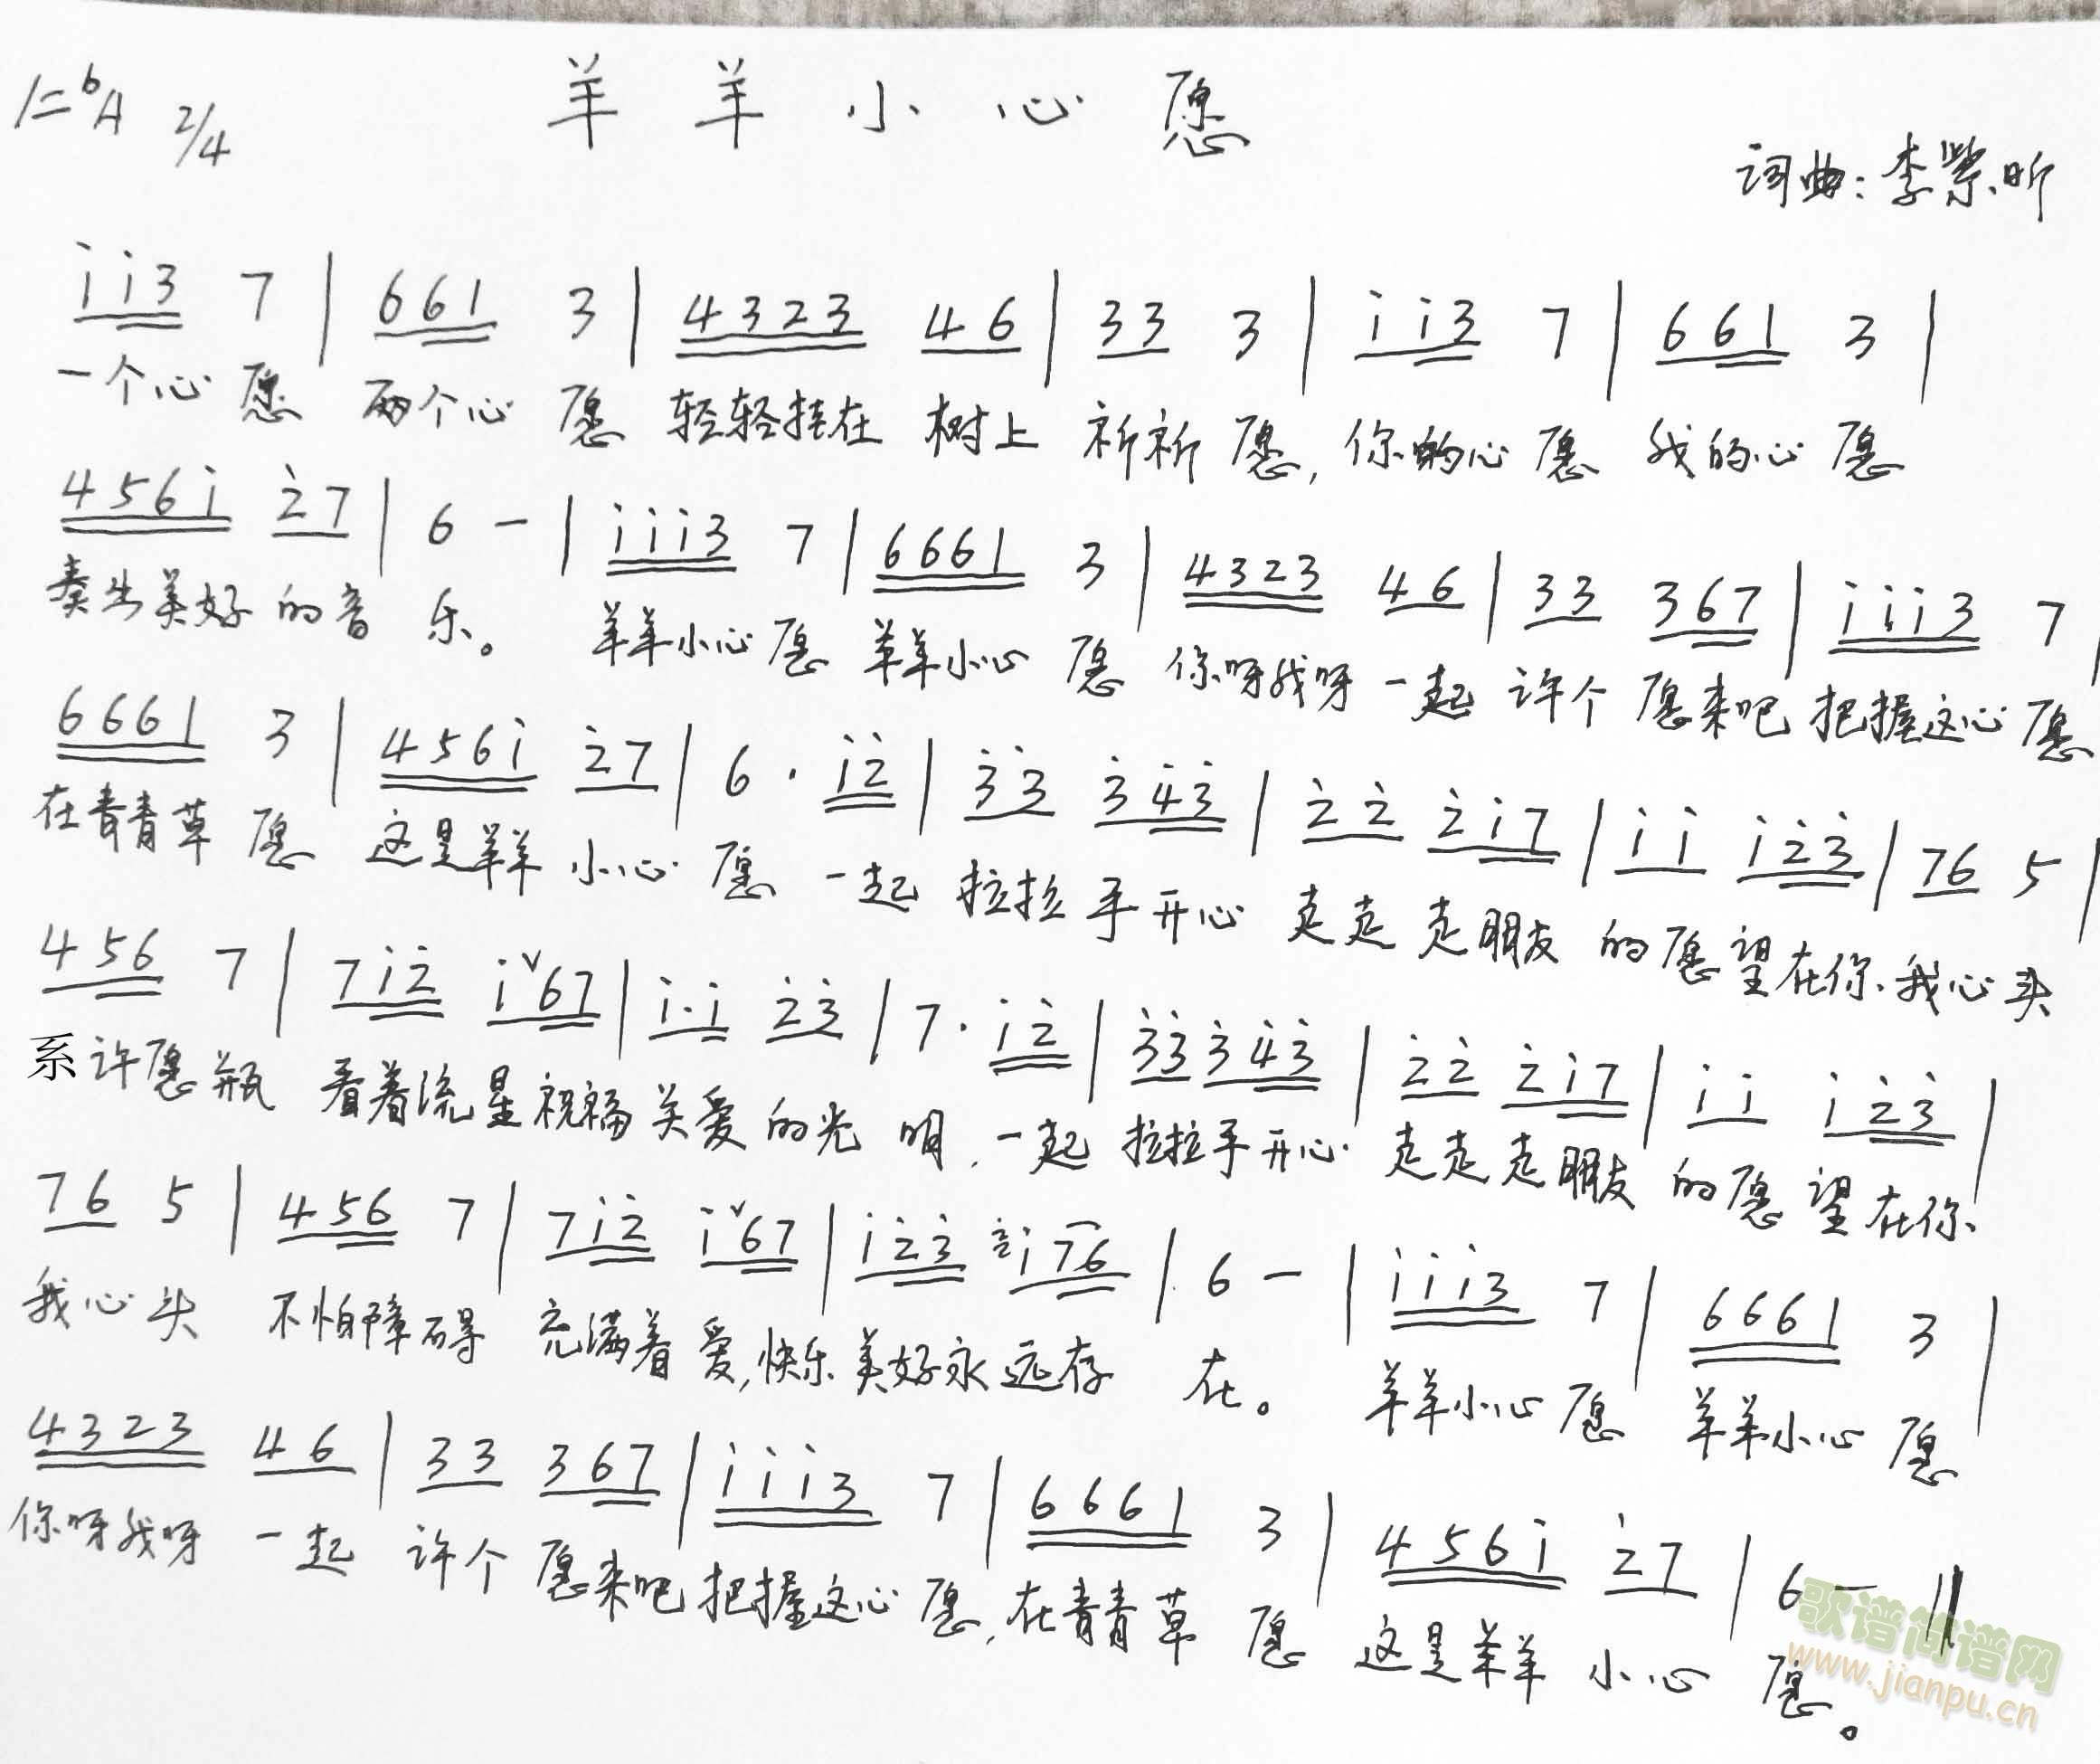 羊羊小心愿
1=ᵇA 2/4
词曲:李紫昕
i̇ i̇ 3 7 | 6 6 1 3 | 4 3 2 3 4 6 | 3 3 3 | i̇ i̇ 3 7 | 6 6 1 3 |
一个心愿 两个心愿 轻轻挂在 树上 祈祈愿, 你的心愿 我的心愿
4 5 6 i̇ 2̇ 7 | 6 - | i̇ i̇ i̇ 3 7 | 6 6 6 1 3 | 4 3 2 3 4 6 | 3 3 3 6 7 | i̇ i̇ i̇ 3 7 |
奏出美好 的音 乐。 羊羊小心愿 羊羊小心愿 你呀我呀 一起 许个 愿来吧 把握这心愿
6 6 6 1 3 | 4 5 6 i̇ 2̇ 7 | 6 · i̇ 2̇ | 3̇ 3̇ 3̇ 4̇ 3̇ | 2̇ 2̇ 2̇ i̇ 7 | i̇ i̇ i̇ 2̇ 3̇ | 7 6 5 |
在青青草 愿 这是羊羊 小心 愿 一起 拉拉 手开心 走走 走朋友 的愿 望在你、我心头
4 5 6 7 | 7 i̇ 2̇ i̇ ᵛ 6 7 | i̇ · i̇ 2̇ 3̇ | 7 · i̇ 2̇ | 3̇ 3̇ 3̇ 4̇ 3̇ | 2̇ 2̇ 2̇ i̇ 7 | i̇ i̇ i̇ 2̇ 3̇ |
系许愿瓶 看着流星祝福关爱的光 明, 一起 拉拉手开心 走走走朋友 的愿 望在你、
7 6 5 | 4 5 6 7 | 7 i̇ 2̇ i̇ ᵛ 6 7 | i̇ 2̇ 3̇ 2̇ i̇ 7 6 | 6 - | i̇ i̇ i̇ 3 7 | 6 6 6 1 3 |
我心头 不怕障碍 充满着爱,快乐美好永远存 在。 羊羊小心愿 羊羊小心愿
4 3 2 3 4 6 | 3 3 3 6 7 | i̇ i̇ i̇ 3 7 | 6 6 6 1 3 | 4 5 6 i̇ 2̇ 7 | 6 - ‖
你呀我呀 一起 许个 愿来吧 把握这心愿,在青青草 愿 这是羊羊 小心 愿。
歌谱简谱网
www.jianpu.cn